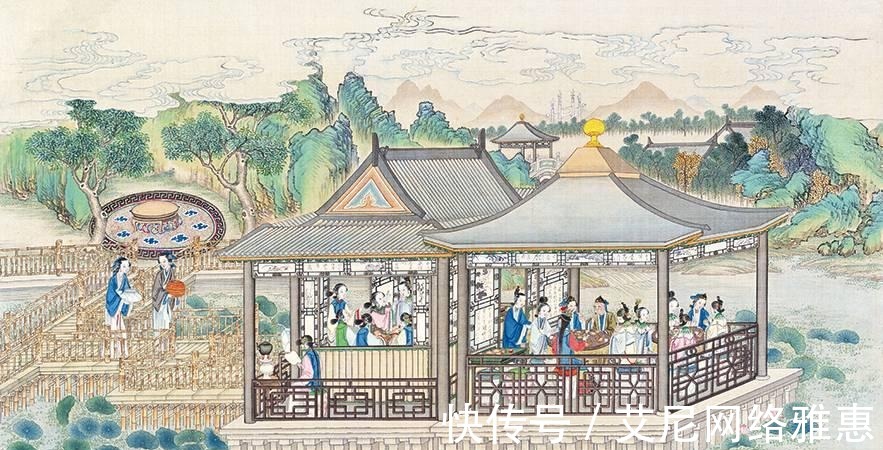 快传号 / 艾尼网络雅惠